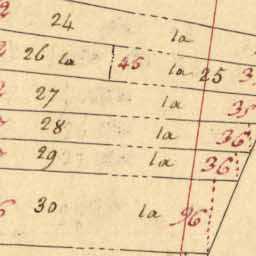 24 la
26 la 45 la 25
27 la 35
28 la 36
29 la 36
30 la 96